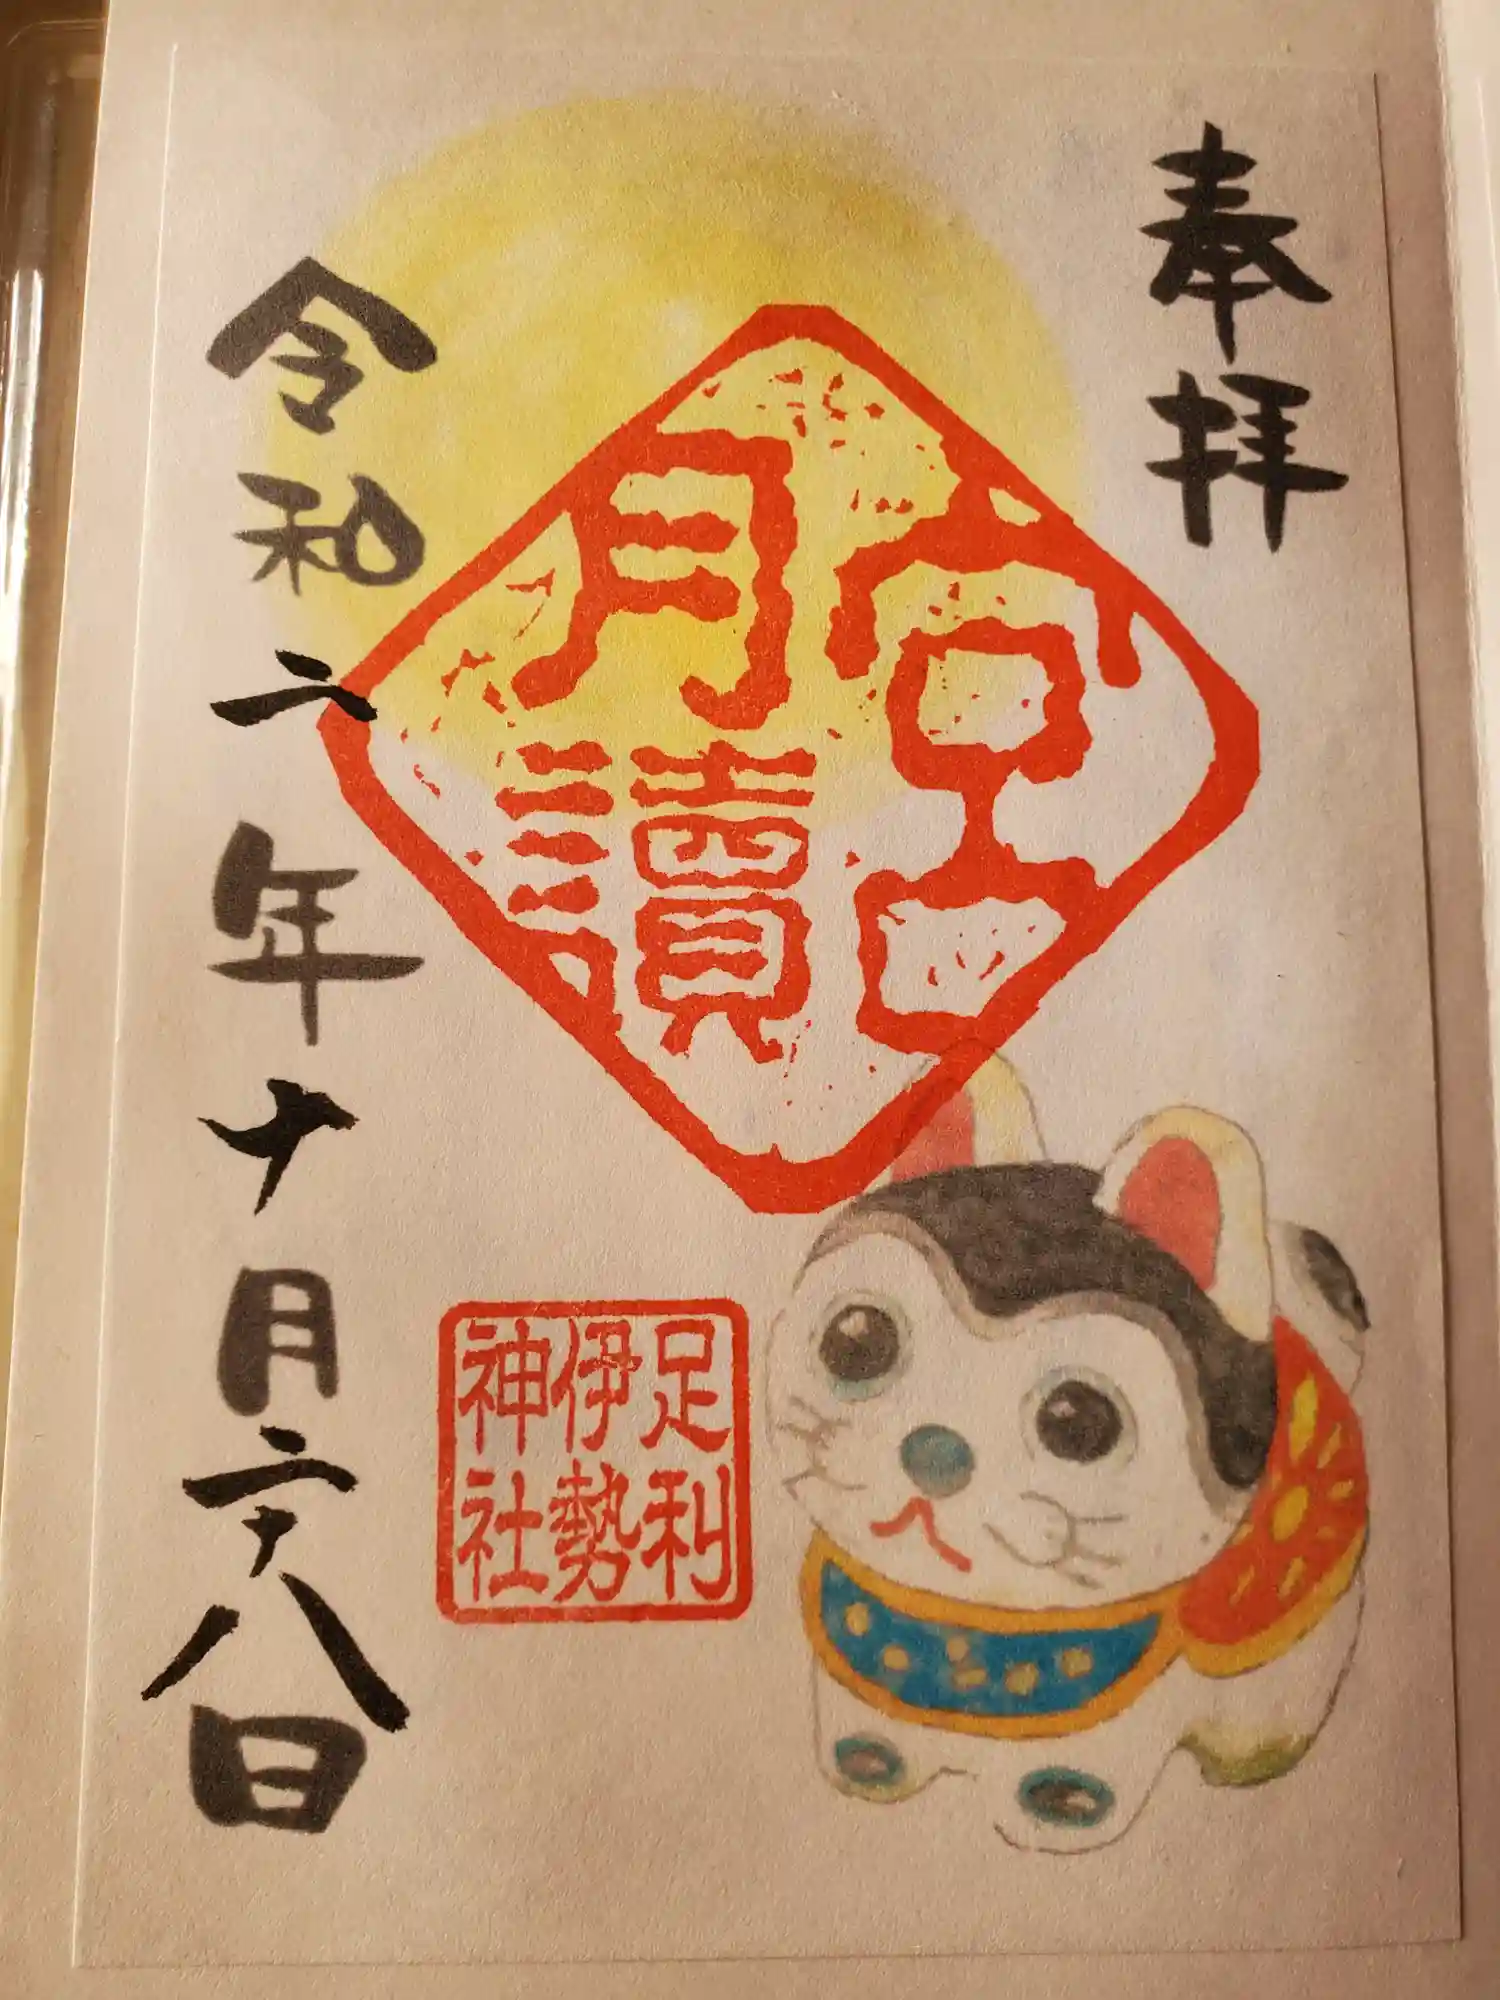 奉拝
宮
月讀
足利
伊勢
神社
令和二年十月二十八日